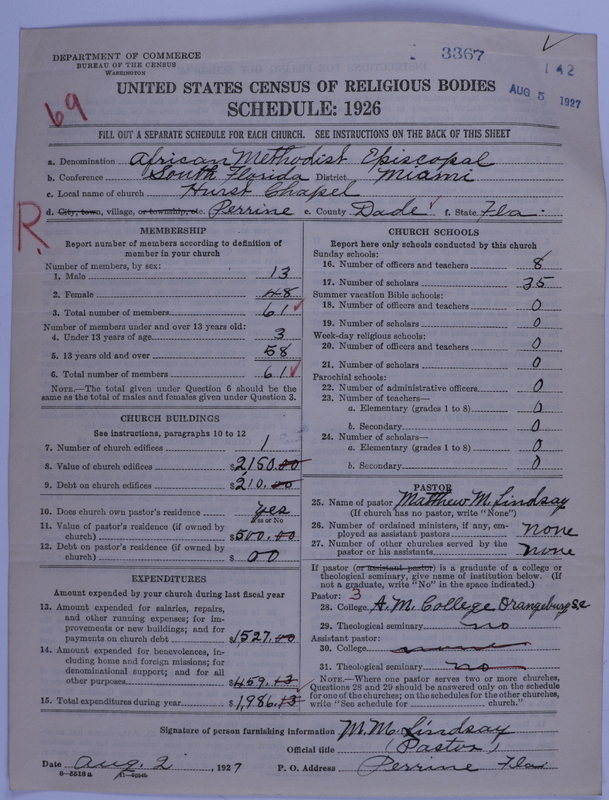 DEPARTMENT OF COMMERCE
BUREAU OF THE CENSUS
WASHINGTON
3367
142
AUG 5 1927
69
R
UNITED STATES CENSUS OF RELIGIOUS BODIES
SCHEDULE: 1926
FILL OUT A SEPARATE SCHEDULE FOR EACH CHURCH. SEE INSTRUCTIONS ON THE BACK OF THIS SHEET
a. Denomination African Methodist Episcopal
b. Conference South Florida District Miami
c. Local name of church Hurst Chapel
d. City, town, village, or township, etc. Perrine e. County Dade f. State Fla.
MEMBERSHIP
Report number of members according to definition of
member in your church
Number of members, by sex:
1. Male 13
2. Female 48
3. Total number of members 61
Number of members under and over 13 years old:
4. Under 13 years of age 3
5. 13 years old and over 58
6. Total number of members 61
NOTE.—The total given under Question 6 should be
the same as the total of males and females given under Question 3.
CHURCH BUILDINGS
See instructions, paragraphs 10 to 12
7. Number of church edifices 1
8. Value of church edifices $2,150.00
9. Debt on church edifices $210.00
10. Does church own pastor's residence yes
Yes or No
11. Value of pastor's residence (if owned by
church) $500.00
12. Debt on pastor's residence (if owned by
church) $ 00
EXPENDITURES
Amount expended by your church during last fiscal year
13. Amount expended for salaries, repairs,
and other running expenses; for im-
provements or new buildings; and for
payments on church debt $1,527.00
14. Amount expended for benevolences, in-
cluding home and foreign missions; for
denominational support; and for all
other purposes $459.13
15. Total expenditures during year $1,986.13
CHURCH SCHOOLS
Report here only schools conducted by this church
Sunday schools:
16. Number of officers and teachers 8
17. Number of scholars 35
Summer vacation Bible schools:
18. Number of officers and teachers 0
19. Number of scholars 0
Week-day religious schools:
20. Number of officers and teachers 0
21. Number of scholars 0
Parochial schools:
22. Number of administrative officers 0
23. Number of teachers—
a. Elementary (grades 1 to 8) 0
b. Secondary 0
24. Number of scholars—
a. Elementary (grades 1 to 8) 0
b. Secondary 0
PASTOR
25. Name of pastor Matthew M. Lindsay
(If church has no pastor, write "None")
26. Number of ordained ministers, if any, em-
ployed as assistant pastors none
27. Number of other churches served by the
pastor or his assistants none
If pastor (or assistant pastor) is a graduate of a college or
theological seminary, give name of institution below. (If
not a graduate, write "No" in the space indicated.)
Pastor: 3
28. College A. M. College Orangeburg S.C.
29. Theological seminary no
Assistant pastor:
30. College none
31. Theological seminary no
NOTE.—Where one pastor serves two or more churches,
Questions 28 and 29 should be answered only on the schedule
for one of the churches; on the schedules for the other churches,
write "See schedule for church."
Signature of person furnishing information M. M. Lindsay
Official title (Pastor)
Date Aug. 2, 1927 P. O. Address Perrine Fla
8—5518a